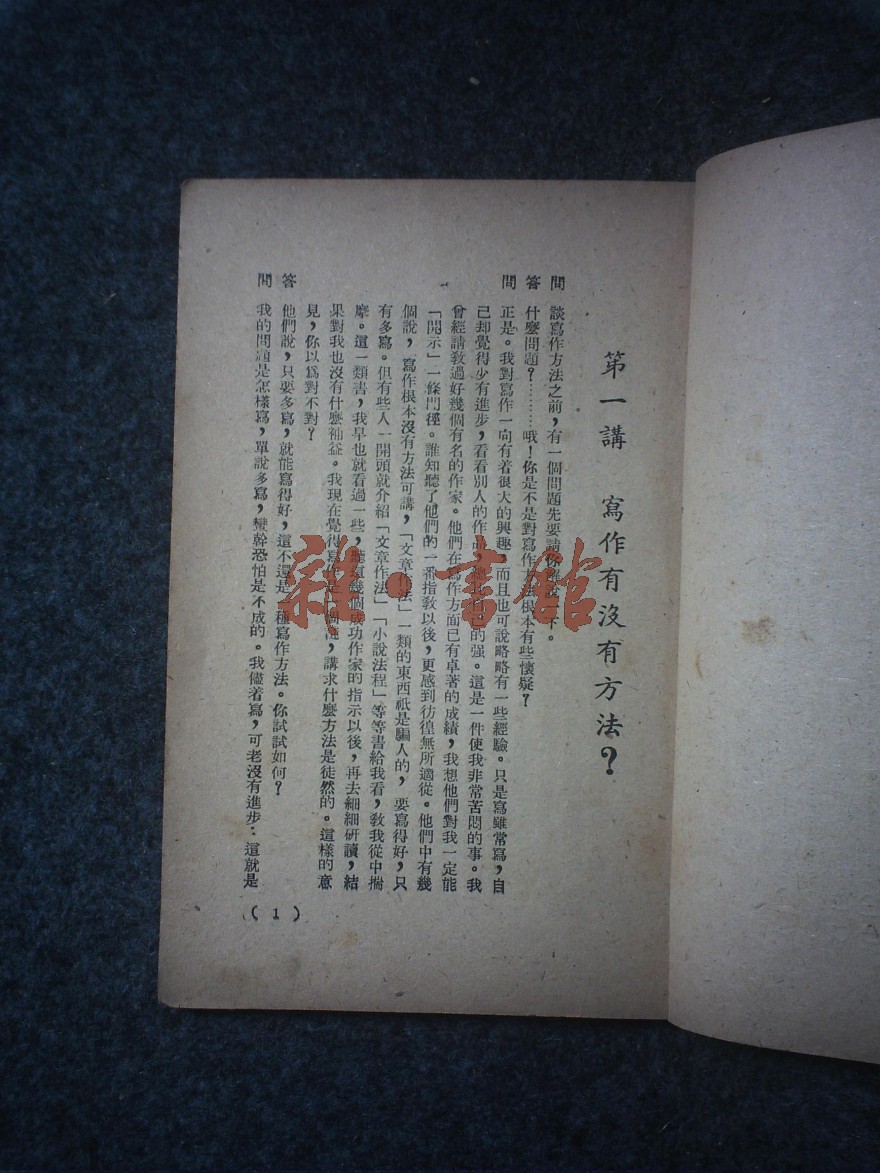 第一講 寫作有沒有方法?
問 談寫作方法之前,有一個問題先要請你解說一下。
答 什麼問題?………哦!你是不是對寫作方法根本有些懷疑?
問 正是。我對寫作一向有着很大的興趣,而且也可說略略有一些經驗。只是寫雖常寫,自
己却覺得少有進步,看看別人的作品,自己的强。這是一件使我非常苦悶的事。我
曾經請敎過好幾個有名的作家。他們在寫作方面已有卓著的成績,我想他們對我一定能
「開示」一條門徑。誰知聽了他們的一番指敎以後,更感到彷徨無所適從。他們中有幾
個說,寫作根本沒有方法可講,「文章作法」一類的東西祇是騙人的,要寫得好,只
有多寫。但有些人一開頭就介紹「文章作法」「小說法程」等等書給我看,敎我從中揣
摩。這一類書,我早也就看過一些,聽這幾個成功作家的指示以後,再去細細研讀,結
果對我也沒有什麼補益。我現在覺得寫作是一個謎,講求什麼方法是徒然的。這樣的意
見,你以爲對不對?
答 他們說,只要多寫,就能寫得好,這不還是一種寫作方法。你試試如何?
問 我的問題是怎樣寫,單說多寫,蠻幹恐怕是不成的。我儘着寫,可老沒有進步:這就是
( 1 )
雜·書館